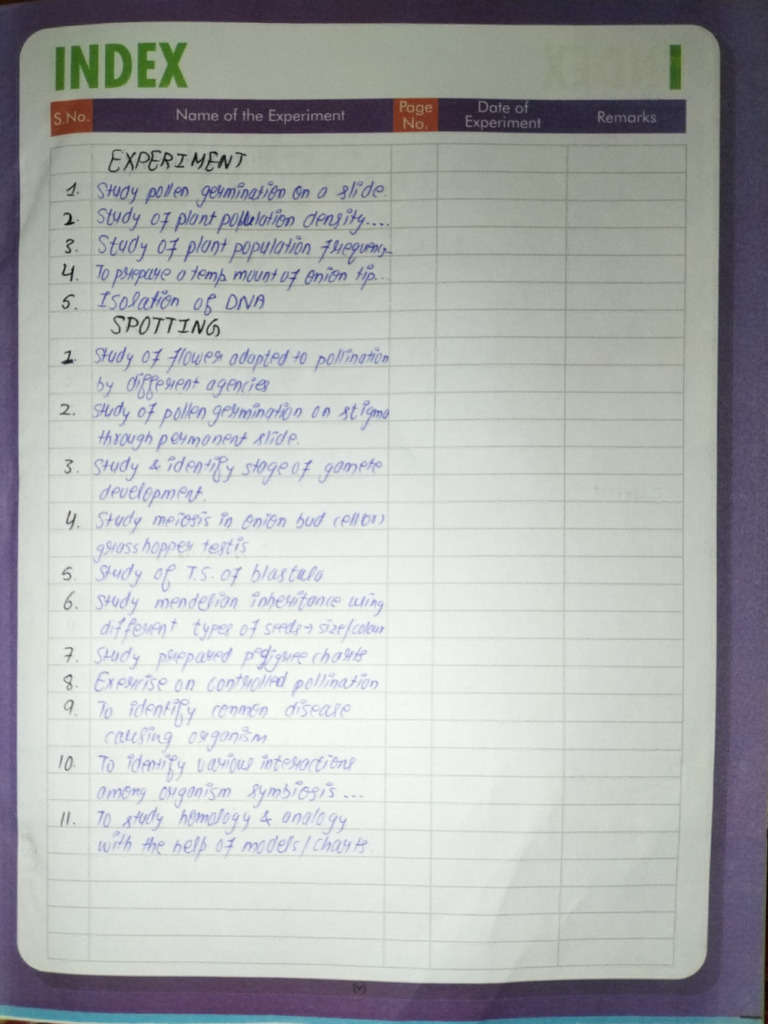 INDEX
S.No. Name of the Experiment Page No. Date of Experiment Remarks
EXPERIMENT
1. Study pollen germination on a slide.
2. Study of plant population density....
3. Study of plant population frequency..
4. To prepare a temp. mount of onion tip...
5. Isolation of DNA
SPOTTING
1. Study of flower adapted to pollination
by different agencies
2. Study of pollen germination on stigma
through permanent slide.
3. Study & identify stage of gamete
development.
4. Study meiosis in onion bud cell(or)
grasshopper testis
5. Study of T.S. of blastula
6. Study mendelian inheritance using
different types of seeds→ size/colour
7. Study prepared pedigree charts
8. Exercise on controlled pollination
9. To identify common disease
causing organism
10. To identify various interactions
among organism symbiosis ...
11. To study homology & analogy
with the help of models/charts.
(v)